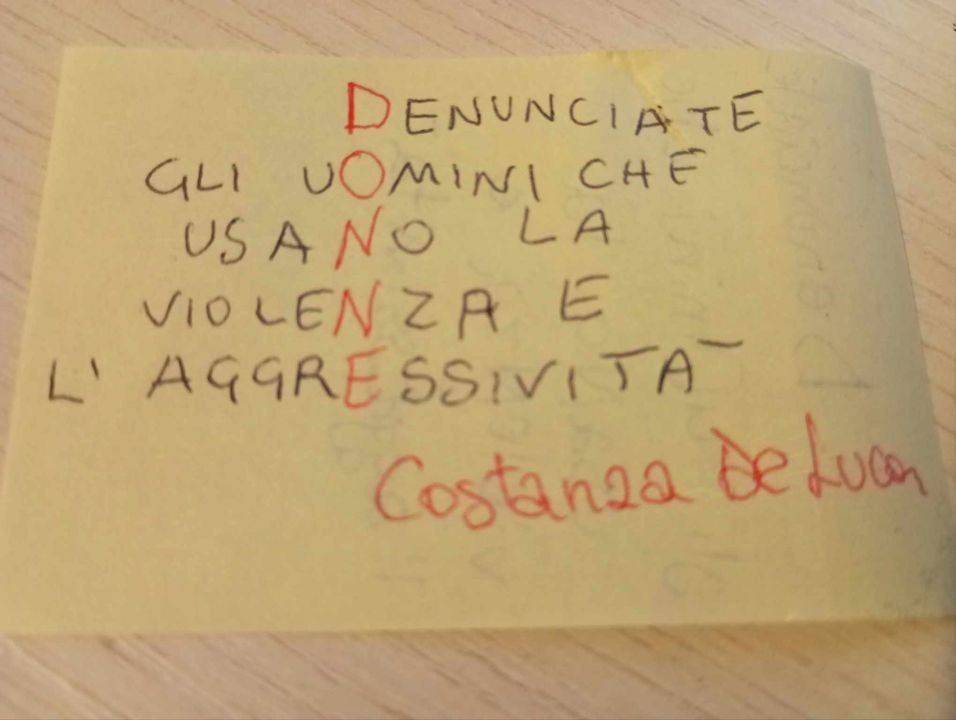 DENUNCIATE
GLI UOMINI CHE
USANO LA
VIOLENZA E
L' AGGRESSIVITÀ
Costanza De Luca